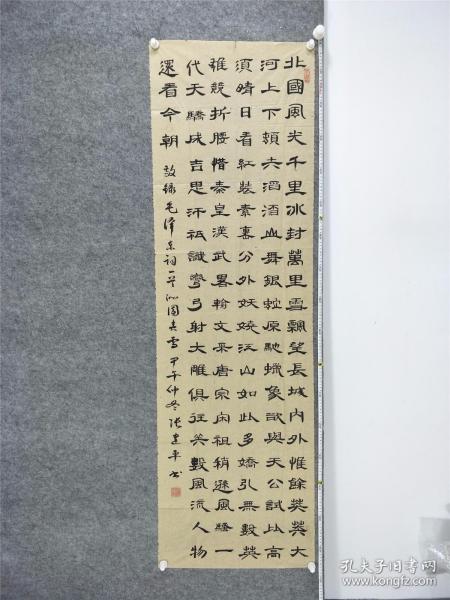 北國風光千里冰封萬里雪飄望長城內外惟餘莽莽大
河上下頓失滔滔山舞銀蛇原馳蠟象欲與天公試比高
須晴日看紅裝素裹分外妖嬈江山如此多嬌引無數英
雄競折腰惜秦皇漢武畧輸文采唐宗宋祖稍遜風騷一
代天驕成吉思汗祇識彎弓射大雕俱往矣數風流人物
還看今朝 敬録毛泽东词一首沁園春雪甲午仲冬张建平书
孔夫子旧书网
kongfz.com